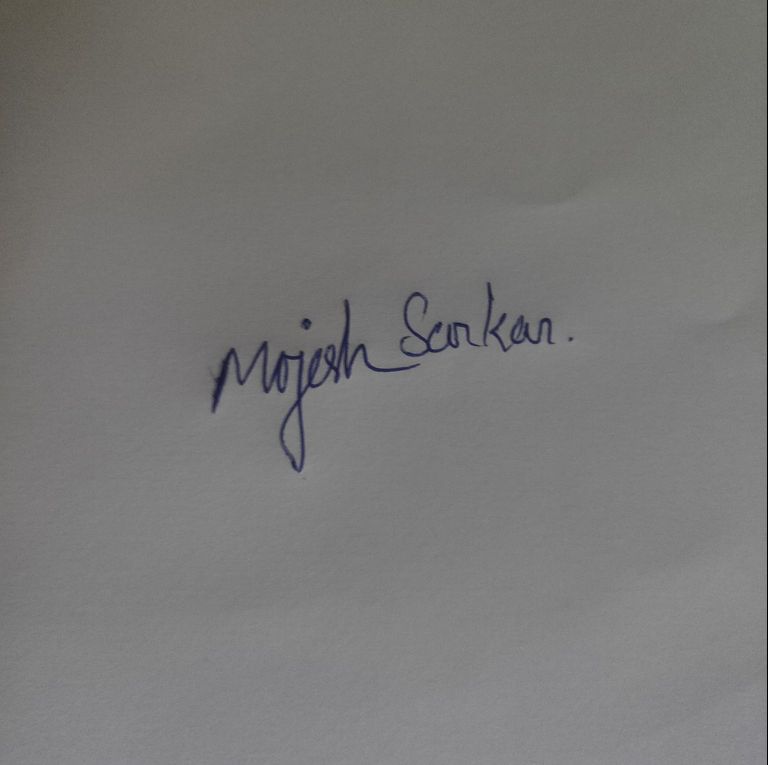 Mojesh Sarkar.